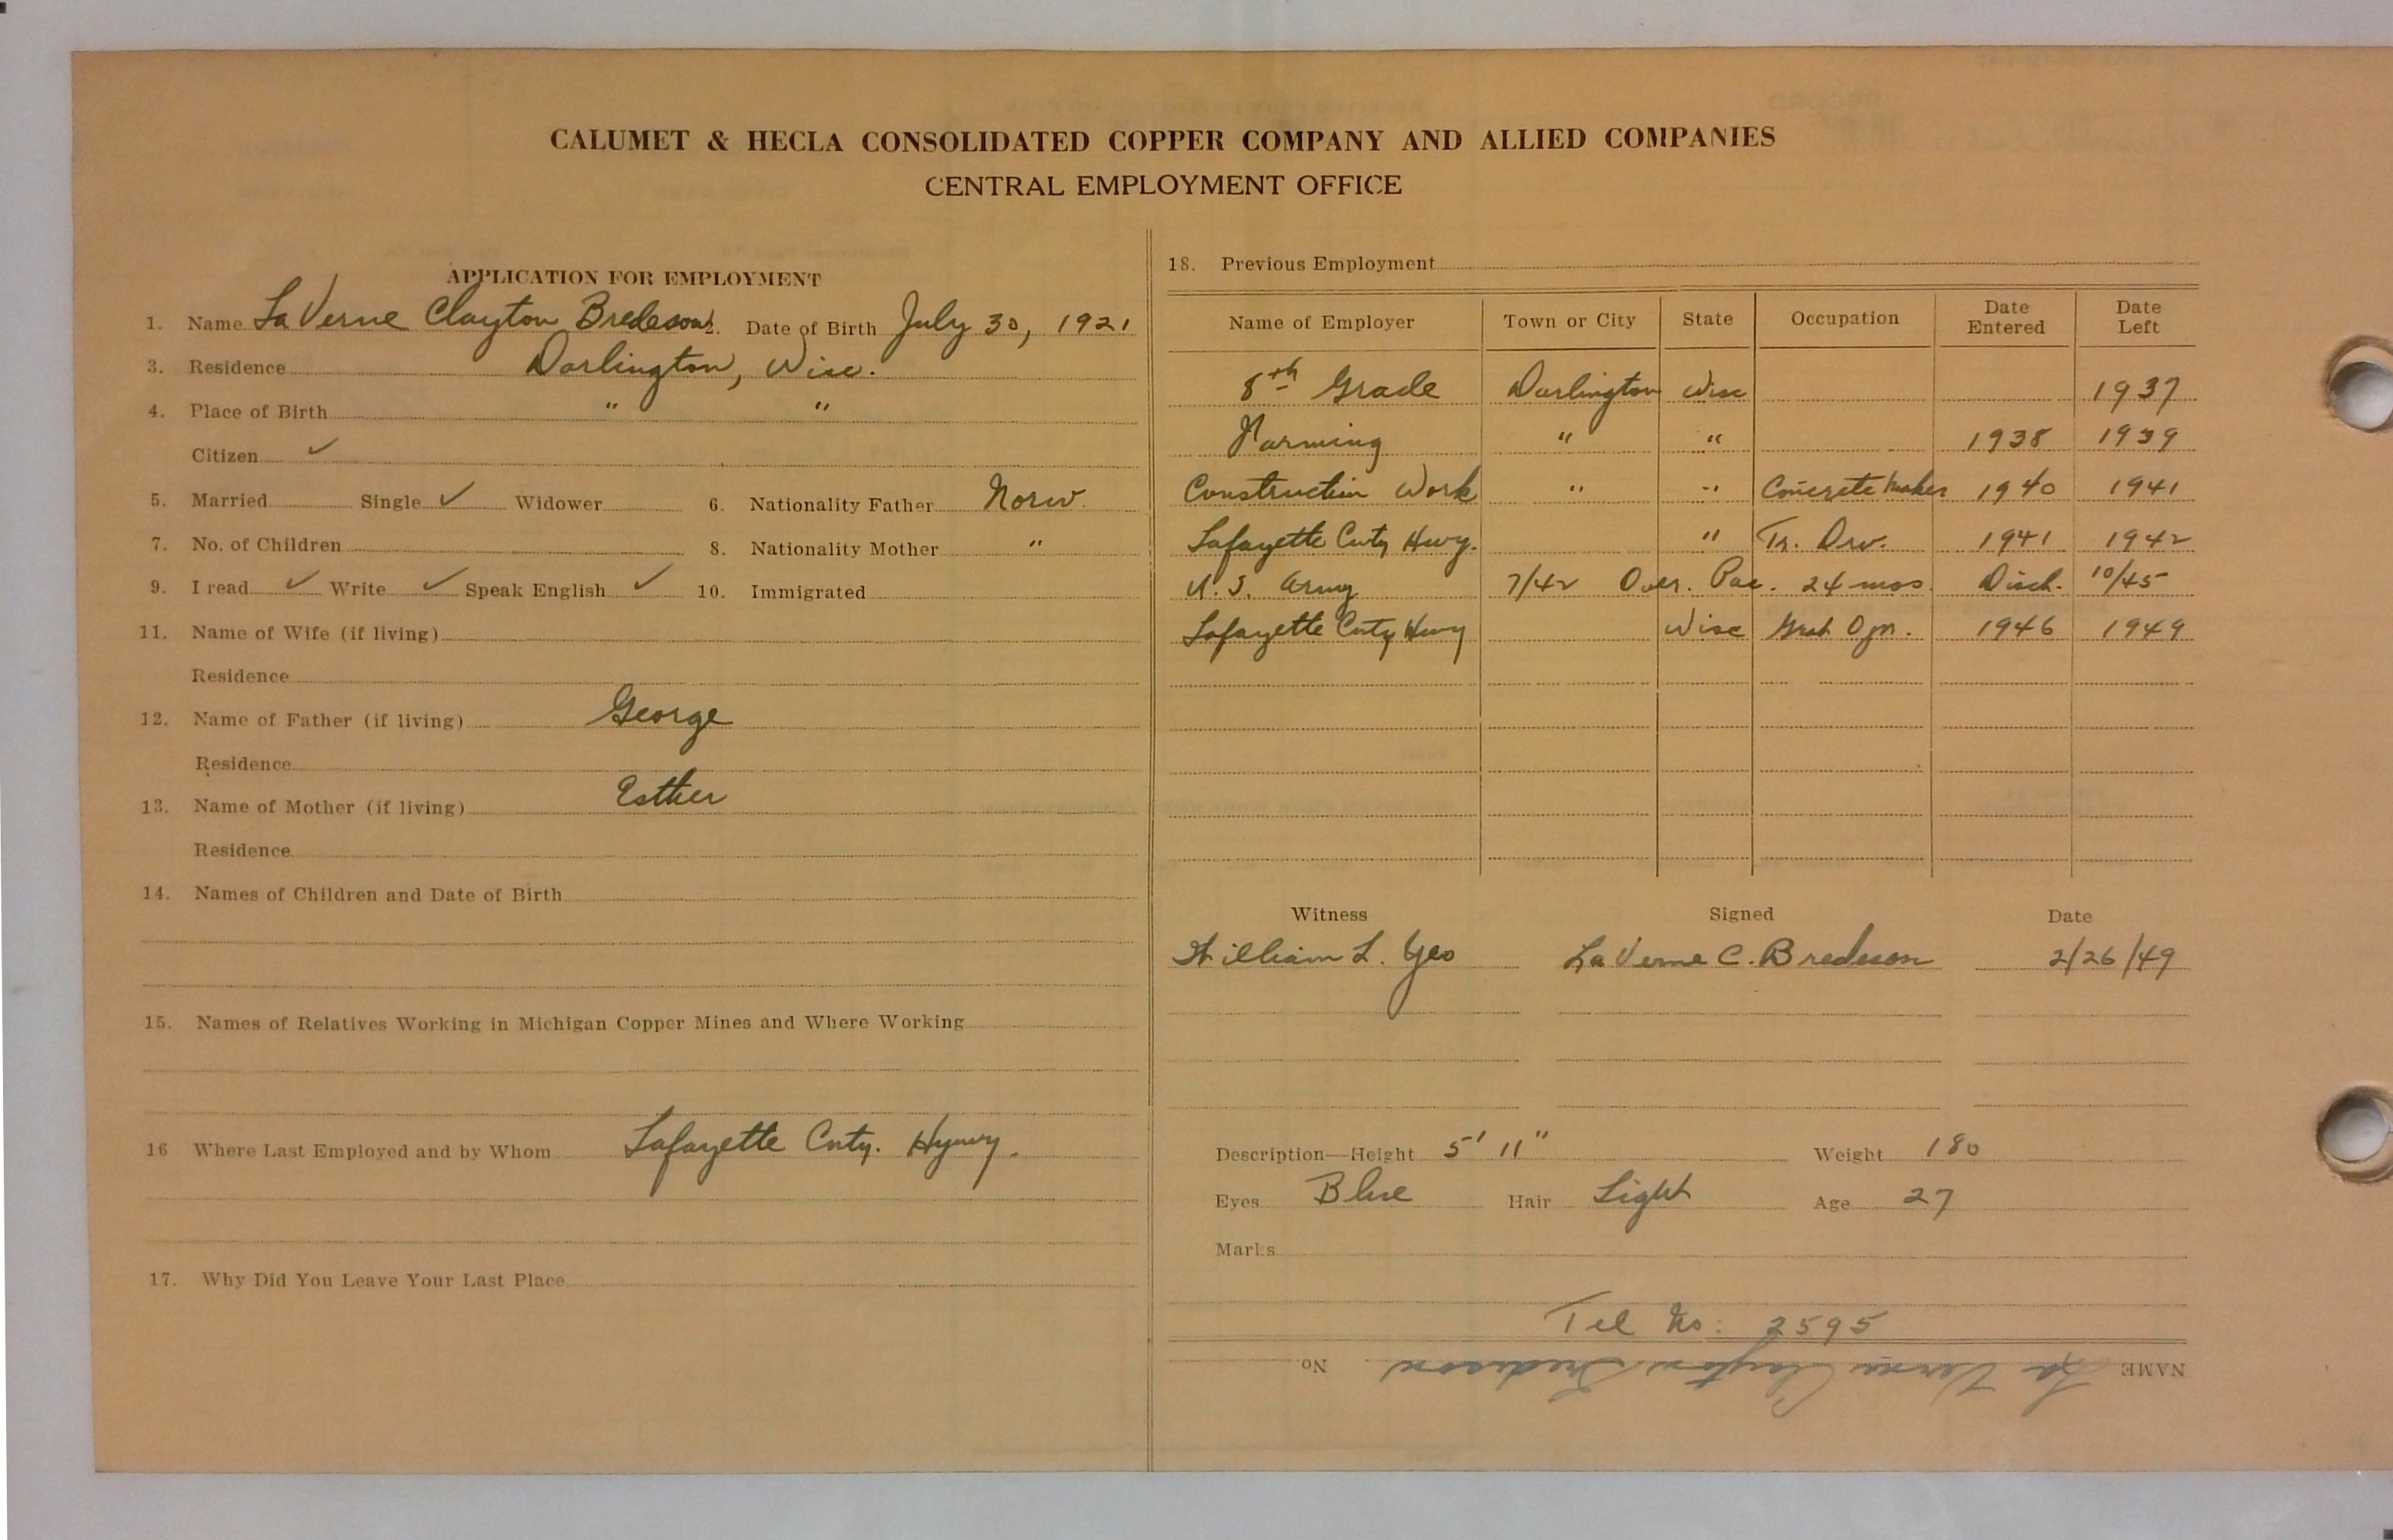 CALUMET & HECLA CONSOLIDATED COPPER COMPANY AND ALLIED COMPANIES
CENTRAL EMPLOYMENT OFFICE
APPLICATION FOR EMPLOYMENT
1. Name La Verne Clayton Bredeson 2. Date of Birth July 30, 1921
3. Residence Darlington, Wisc.
4. Place of Birth " "
Citizen ✓
5. Married Single ✓ Widower 6. Nationality Father Norw.
7. No. of Children 8. Nationality Mother "
9. I read ✓ Write ✓ Speak English ✓ 10. Immigrated
11. Name of Wife (if living)
Residence
12. Name of Father (if living) George
Residence
13. Name of Mother (if living) Esther
Residence
14. Names of Children and Date of Birth
15. Names of Relatives Working in Michigan Copper Mines and Where Working
16 Where Last Employed and by Whom Lafayette Cnty. Hywy.
17. Why Did You Leave Your Last Place
18. Previous Employment
Name of Employer Town or City State Occupation Date Entered Date Left
8th Grade Darlington Wisc 1937
Farming " " 1938 1939
Construction Work " " Concrete Maker 1940 1941
Lafayette Cnty Hwy. " Tr. Drv. 1941 1942
U.S. Army 7/42 Over. Pac. 24 mos. Disch. 10/45
Lafayette Cnty Hwy Wisc Opr. 1946 1949
Witness Signed Date
William L. Yeo La Verne C. Bredeson 2/26/49
Description—Height 5' 11" Weight 180
Eyes Blue Hair Light Age 27
Marks
Tel No: 2595
NAME La Verne Clayton Bredeson No.